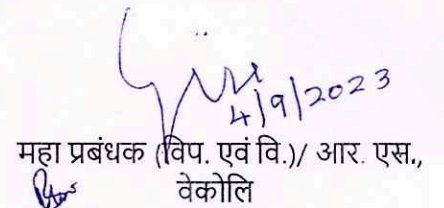 4/9/2023
महा प्रबंधक (विप. एवं वि.)/ आर. एस.,
वेकोलि